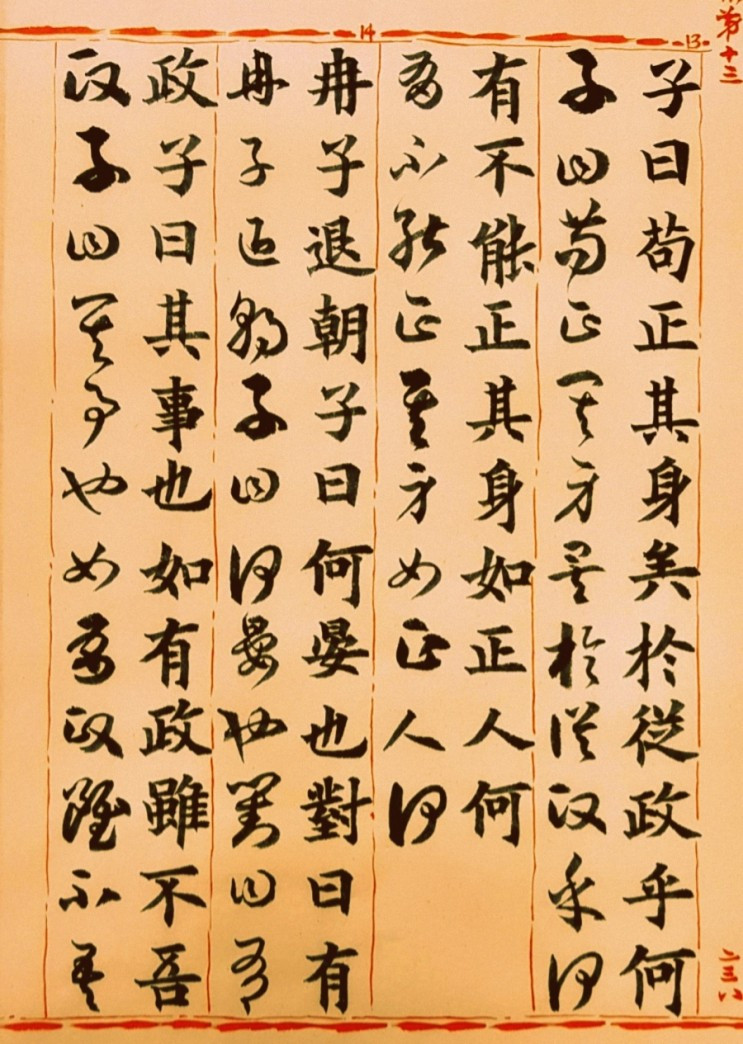 第十三
二三八
13
子曰苟正其身矣於從政乎何
子曰苟正其身矣於從政乎何
有不能正其身如正人何
有不能正其身如正人何
14
冉子退朝子曰何晏也對曰有
冉子退朝子曰何晏也對曰有
政子曰其事也如有政雖不吾
政子曰其事也如有政雖不吾